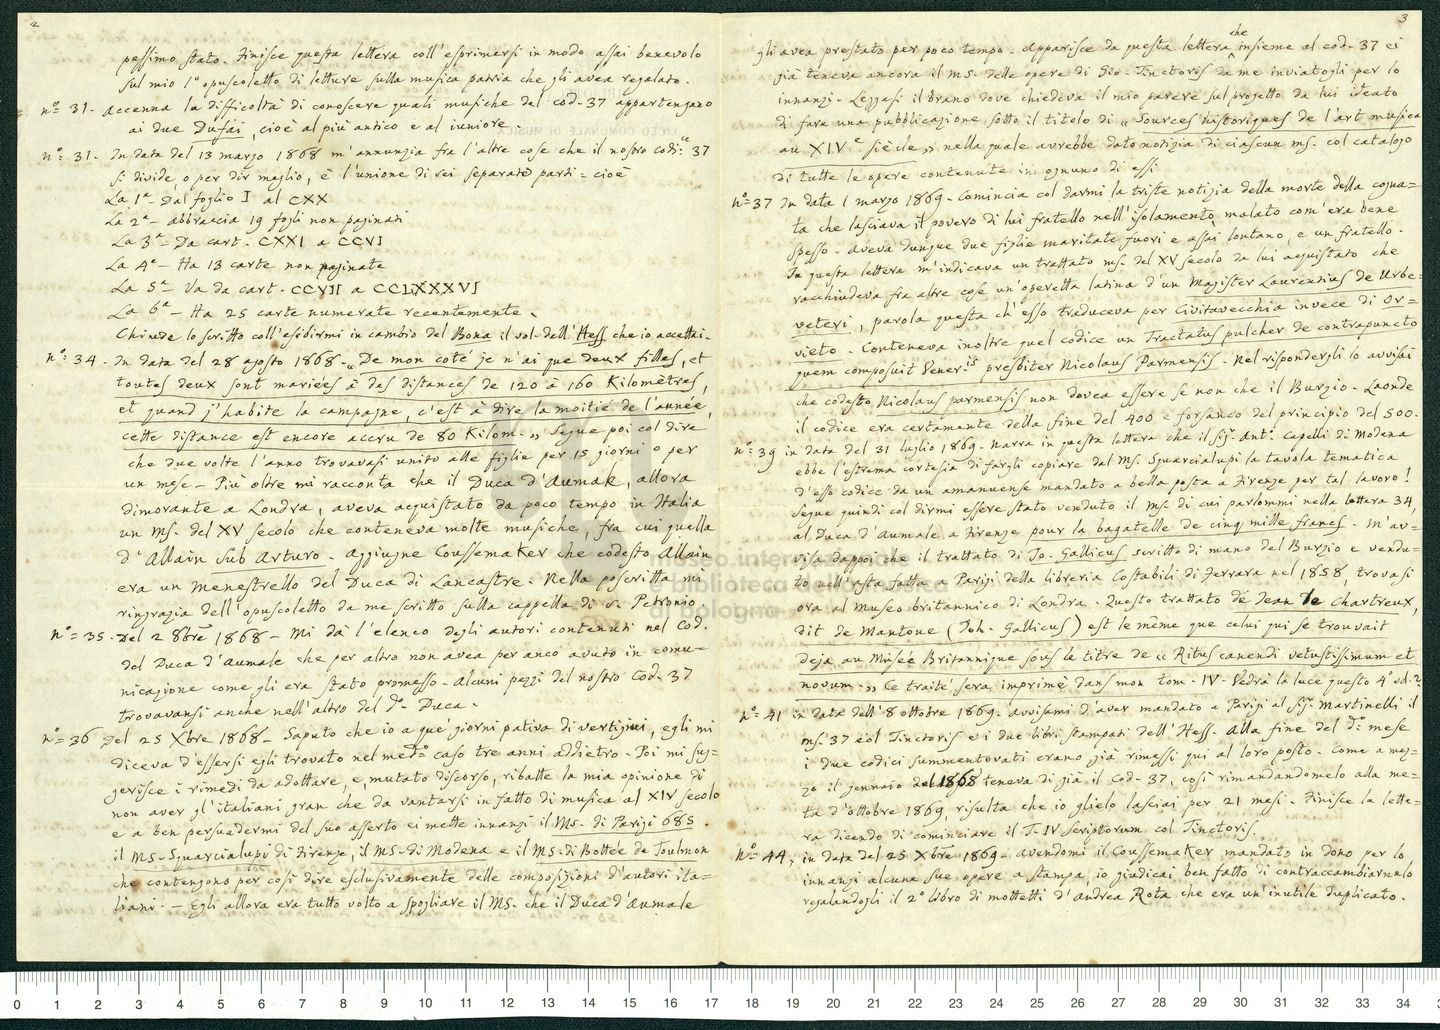 2
pessimo stato. Finisce questa lettera coll'esprimersi in modo assai benevolo
sul mio 1º opuscoletto di letture sulla musica patria che gli avea regalato.
nº= 31. accenna la difficoltà di conoscere quali musiche del cod. 37 appartengano
ai due Dufai, cioè al più antico e al iuniore.
nº= 31. In data del 13 marzo 1868 m'annunzia fra l'altre cose che il nostro codi:ce 37
si divide, o per dir meglio, è l'unione di sei separate parti = cioè
La 1ª Dal foglio I al CXX
La 2ª abbraccia 19 fogli non paginati
La 3ª Da cart. CXXI a CCVI
La 4ª Ha 13 carte non paginate
La 5ª Va da cart. CCVII a CCLXXXVI
La 6ª Ha 25 carte numerate recentemente.
Chiude lo scritto coll'esibirmi in cambio del Bona il vol. dell'Hess che io accettai.
nº= 34. In data del 28 agosto 1868 = „ De mon coté je n'ai que deux filles, et
toutes deux sont mariées à des distances de 120 à 160 Kilomètres,
et quand j'habite la campagne, c'est à dire la moitié de l'année,
cette distance est encore accru de 80 Kilom. „ Segue poi col dire
che due volte l'anno trovavasi unito alle figlie per 15 giorni o per
un mese = Più oltre mi racconta che il Duca d'Aumale, allora
dimorante a Londra, aveva acquistato da poco tempo in Italia
un ms. del XV secolo che conteneva molte musiche, fra cui quella
d'Allain sub Arturo. Aggiugne Coussemaker che codesto Allain
era un menestrello del Duca di Lancastre. Nella poscritta mi
ringrazia dell'opuscoletto da me scritto sulla cappella di s. Petronio.
nº= 35. Del 2 8bre 1868 = Mi dà l'elenco degli autori contenuti nel Cod.
del Duca d'Aumale che per altro non avea per anco avuto in comu=
nicazione come gli era stato promesso. Alcuni pezzi del nostro Cod. 37
trovavansi anche nell'altro del dº Duca.
nº= 36 Del 25 Xbre 1868 = Saputo che io a que' giorni pativa di vertigini, egli mi
diceva d'essersi egli trovato nel medº caso tre anni addietro. Poi mi sug=
gerisce i rimedi da adottare, e mutato discorso, ribatte la mia opinione di
non aver gl'italiani gran che da vantarsi in fatto di musica al XIV secolo
e a ben persuadermi del suo asserto ei mette innanzi il Ms. di Parigi 685.
il MS. Squarcialupi di Firenze, il MS. di Modena e il MS. di Bottée de Toulmon
che contengono per così dire esclusivamente delle composizioni d'autori ita=
liani. — Egli allora era tutto volto a spogliare il MS. che il Duca d'Aumale
3
gli avea prestato per poco tempo. Apparisce da questa lettera che insieme al cod. 37 ei
già teneva ancora il ms. delle opere di Gio. Tinctoris da me inviatogli per lo
innanzi. Leggasi il brano dove chiedeva il mio parere sul progetto da lui ideato
di fare una pubblicazione sotto il titolo di „ Sources historiques de l'art musica
au XIVe siècle „ nella quale avrebbe dato notizia di ciascun ms. col catalogo
di tutte le opere contenute in ognuno di essi
nº= 37 In data 1 marzo 1869. Comincia col darmi la triste notizia della morte della cogna=
ta che lasciava il povero di lui fratello nell'isolamento, malato com'era bene
spesso. Aveva dunque due figlie maritate fuori e assai lontano, e un fratello.
In questa lettera m'indicava un trattato ms. del XV secolo da lui acquistato che
racchiudeva fra altre cose un'operetta latina d'un Magister Laurentius de Urbe=
veteri, parola questa ch'esso traduceva per Civitavecchia invece di Or=
vieto. Conteneva inoltre quel codice un Tractatus pulcher de contrapuncto
quem composuit Vener.is presbiter Nicolaus Parmensis. Nel rispondergli lo avvisai
che codesto Nicolaus parmensis non dovea essere se non che il Burzio. Laonde
il codice era certamente della fine del 400 e forsanco del principio del 500.
nº= 39 in data del 31 luglio 1869. Narra in questa lettera che il sig. Antº. Capelli di Modena
ebbe l'estrema cortesia di fargli copiare dal Ms. Squarcialupi la tavola tematica
d'esso codice da un amanuense mandato a bella posta a Firenze per tal lavoro!
Segue quindi col dirmi essere stato venduto il ms. di cui parlommi nella lettera 34,
al Duca d'Aumale a Firenze pour la bagatelle de cinq mille francs. M'av=
visa dappoi che il trattato di Jo. Gallicus scritto di mano del Burzio e vendu=
to nell'asta fatta a Parigi della libreria Costabili di Ferrara nel 1858, trovasi
ora al Museo britannico di Londra. Questo trattato de Jean le Chartreux,
dit de Mantoue (Joh. Gallicus) est le même que celui qui se trouvait
deja au Musée Britannique sous le titre de „ Ritus canendi vetustissimum et
novum. „ Ce traité sera imprimé dans mon tom. IV. Vedrà la luce questo 4º vol.?
nº= 41 in data dell'8 ottobre 1869. avvisami d'aver mandato a Parigi al Sig. Martinelli il
ms. 37 e il Tinctoris e i due libri stampati dell'Hess. Alla fine del dº mese
i due codici summentovati erano già rimessi qui al loro posto. Come a mez=
zo il gennaio del 1868 teneva di già il Cod. 37, così rimandandomelo alla me=
tà d'ottobre 1869, risulta che io glielo lasciai per 21 mesi. Finisce la lette=
ra dicendo di cominciare il T. IV Scriptorum col Tinctoris.
nº= 44, in data del 25 Xbre 1869. avendomi il Coussemaker mandato in dono per lo
innanzi alcune sue opere a stampa, io giudicai ben fatto di contraccambiarnelo
regalandogli il 2º libro di mottetti d'Andrea Rota che era un'inutile duplicato.
museo internazionale
e biblioteca della musica
di bologna
0 1 2 3 4 5 6 7 8 9 10 11 12 13 14 15 16 17 18 19 20 21 22 23 24 25 26 27 28 29 30 31 32 33 34